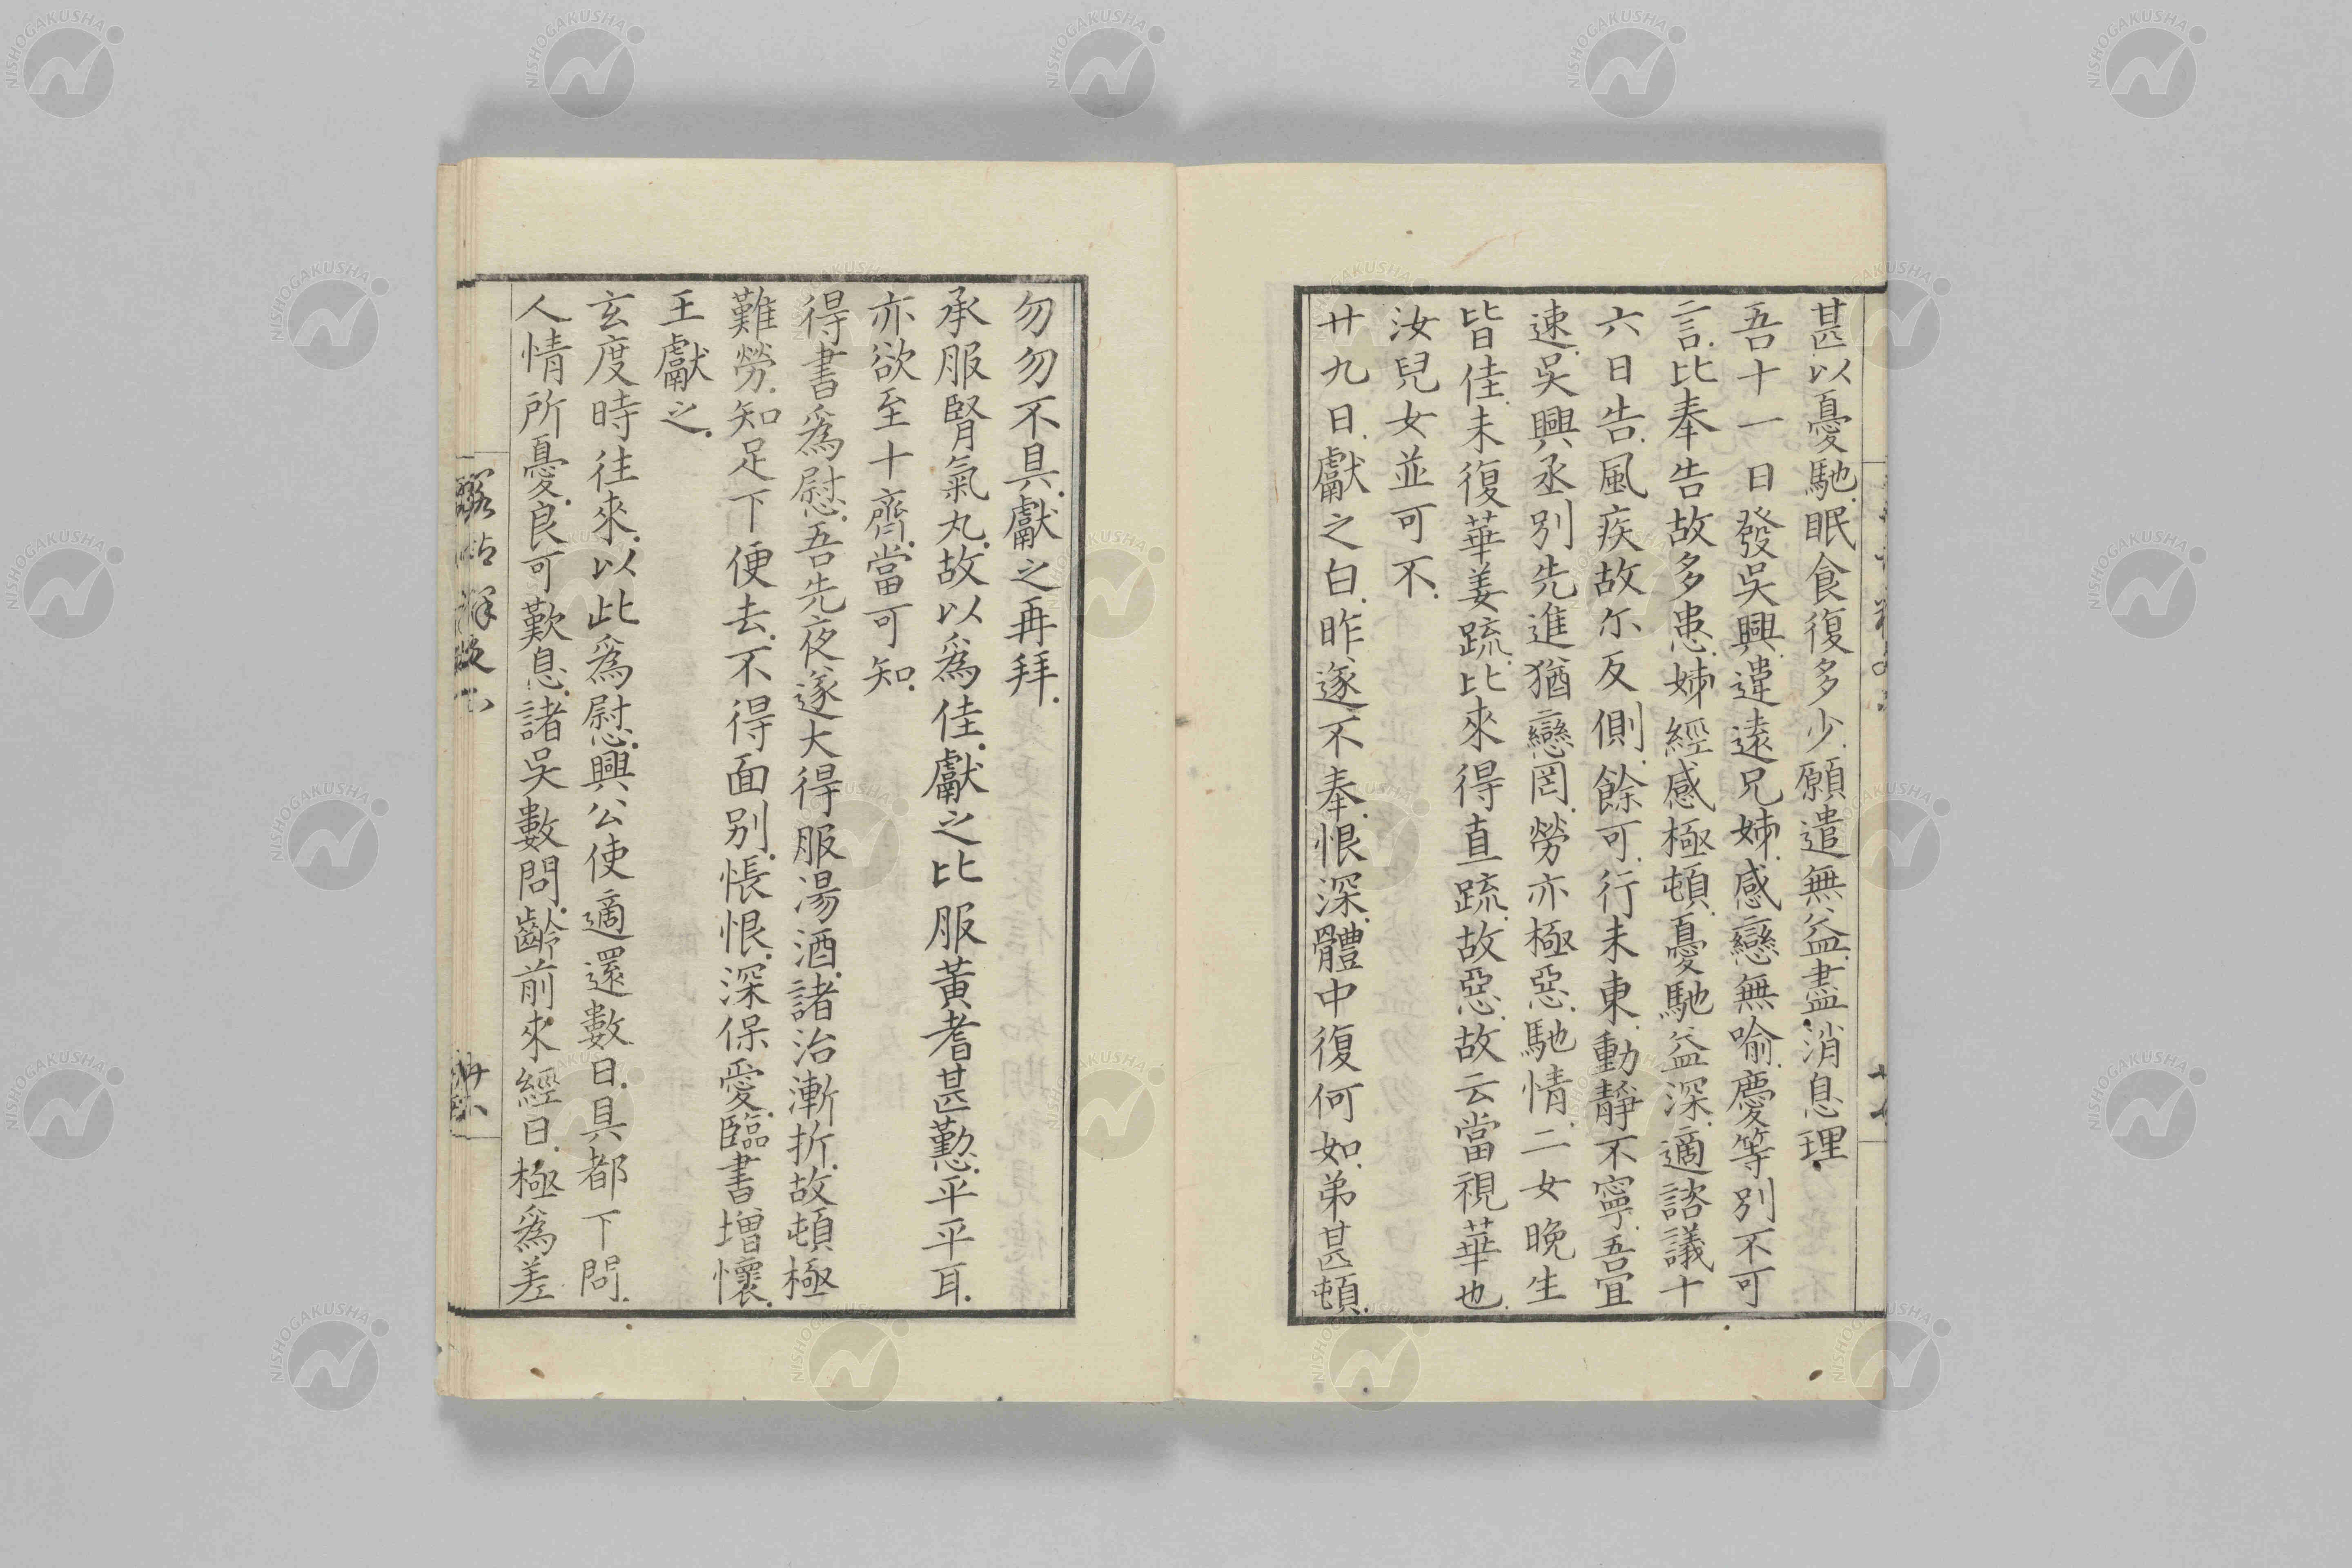 甚以憂馳.眠食復多少.願遣無益.盡消息理.
吾十一日發吳興.違遠兄姊.感戀無喻.慶等別不可
言.比奉告故多患.姊經感極頓.憂馳益深.適諮議十
六日告.風疾故尓反側.餘可.行未東.動靜不寧.吾冝
速.吳興丞別先進猶戀罔.勞亦極惡.馳情.二女晚生
皆佳.未復華姜疏.比來得直疏.故惡.故云當視華也.
汝兒女並可不.
廿九日.獻之白.昨遂不奉.恨深.體中復何如.弟甚頓.
勿勿不具.獻之再拜.
承服腎氣丸.故以爲佳.獻之比服黃耆甚懃.平平耳.
亦欲至十齊.當可知.
得書爲慰.吾先夜遂大得服湯酒.諸治漸折.故頓極
難勞.知足下便去.不得面別.悵恨.深保愛.臨書增懷.
王獻之.
玄度時往來.以此爲慰.興公使適還數日.具都下問.
人情所憂.良可歎息.諸吳數問.齡前來經日.極爲差
NISHOGAKUSHA